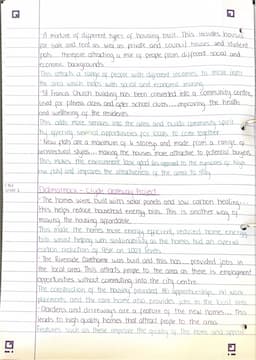 · A mixture of different types of housing built. This includes houses
for sale and rent as well as private and council houses and student
flats ... therefore attracting a mix of people from different social and
economic backgrounds.
This attracts a range of people with different incomes to move into
the area which helps with social and economic mixing.
· St Francis Church building has been converted into a community centre
used for fitness class and after school clubs ... improving the health
and wellbeing of the residents.
This adds more services into the area and builds community spirit
by offering several opportunities for locals to come together.
· New flats are a maximum of 4 storeys and made from a range of
architectural styles ... making the houses more attractive to potential buyers.
This makes the environment look good as opposed to the eyesores of high
rise flats and improves the attractiveness of the area to stay
Dalmarnock - Clyde Gateway Project
· The homes were built with solar panels and low carbon heating...
this helps reduce household energy bills. This is another way of
making the housing affordable.
This made the homes more energy efficient, reduced home energy
bills whilst helping with sustainability as the homes had an overall
carbon reduction of 95% on 2007 levels.
· The Riverside Carehome was built and this has ... provided jobs in
the local area. This attracts people to the area as there is employment
opportunities without commuting into the city centre.
The construction of the housing provided apprenticeships and work
placements and the care home also provides jobs in the local area.
· Gardens and driveways are a feature of the new homes ... This
leads to high quality homes that attract people to the area.
Features such as these improve the quality of the home and appeal